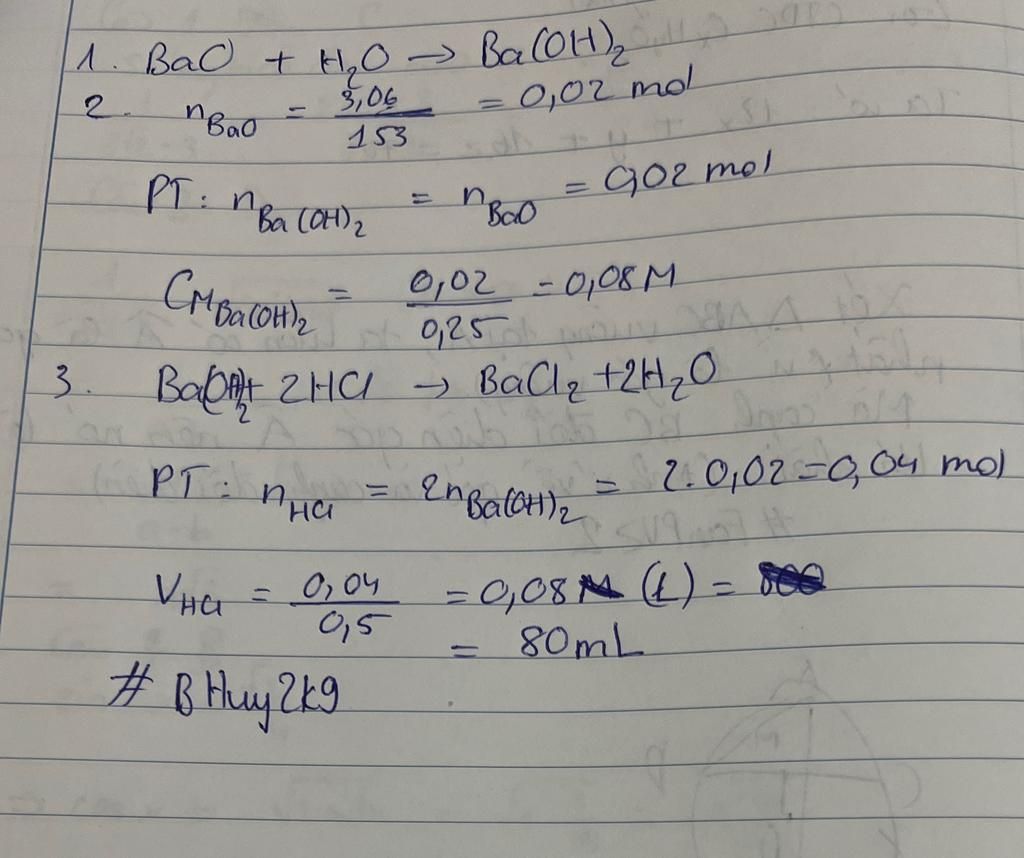 1. BaO + H₂O → Ba(OH)₂
2. n_BaO = 3,06/153 = 0,02 mol
PT: n_Ba(OH)₂ = n_BaO = 0,02 mol
C_M Ba(OH)₂ = 0,02/0,25 = 0,08M
3. Ba(OH)₂ + 2HCl → BaCl₂ + 2H₂O
PT: n_HCl = 2n_Ba(OH)₂ = 2.0,02 = 0,04 mol
V_HCl = 0,04/0,5 = 0,08 (L) =
= 80mL
# BHuy2k9